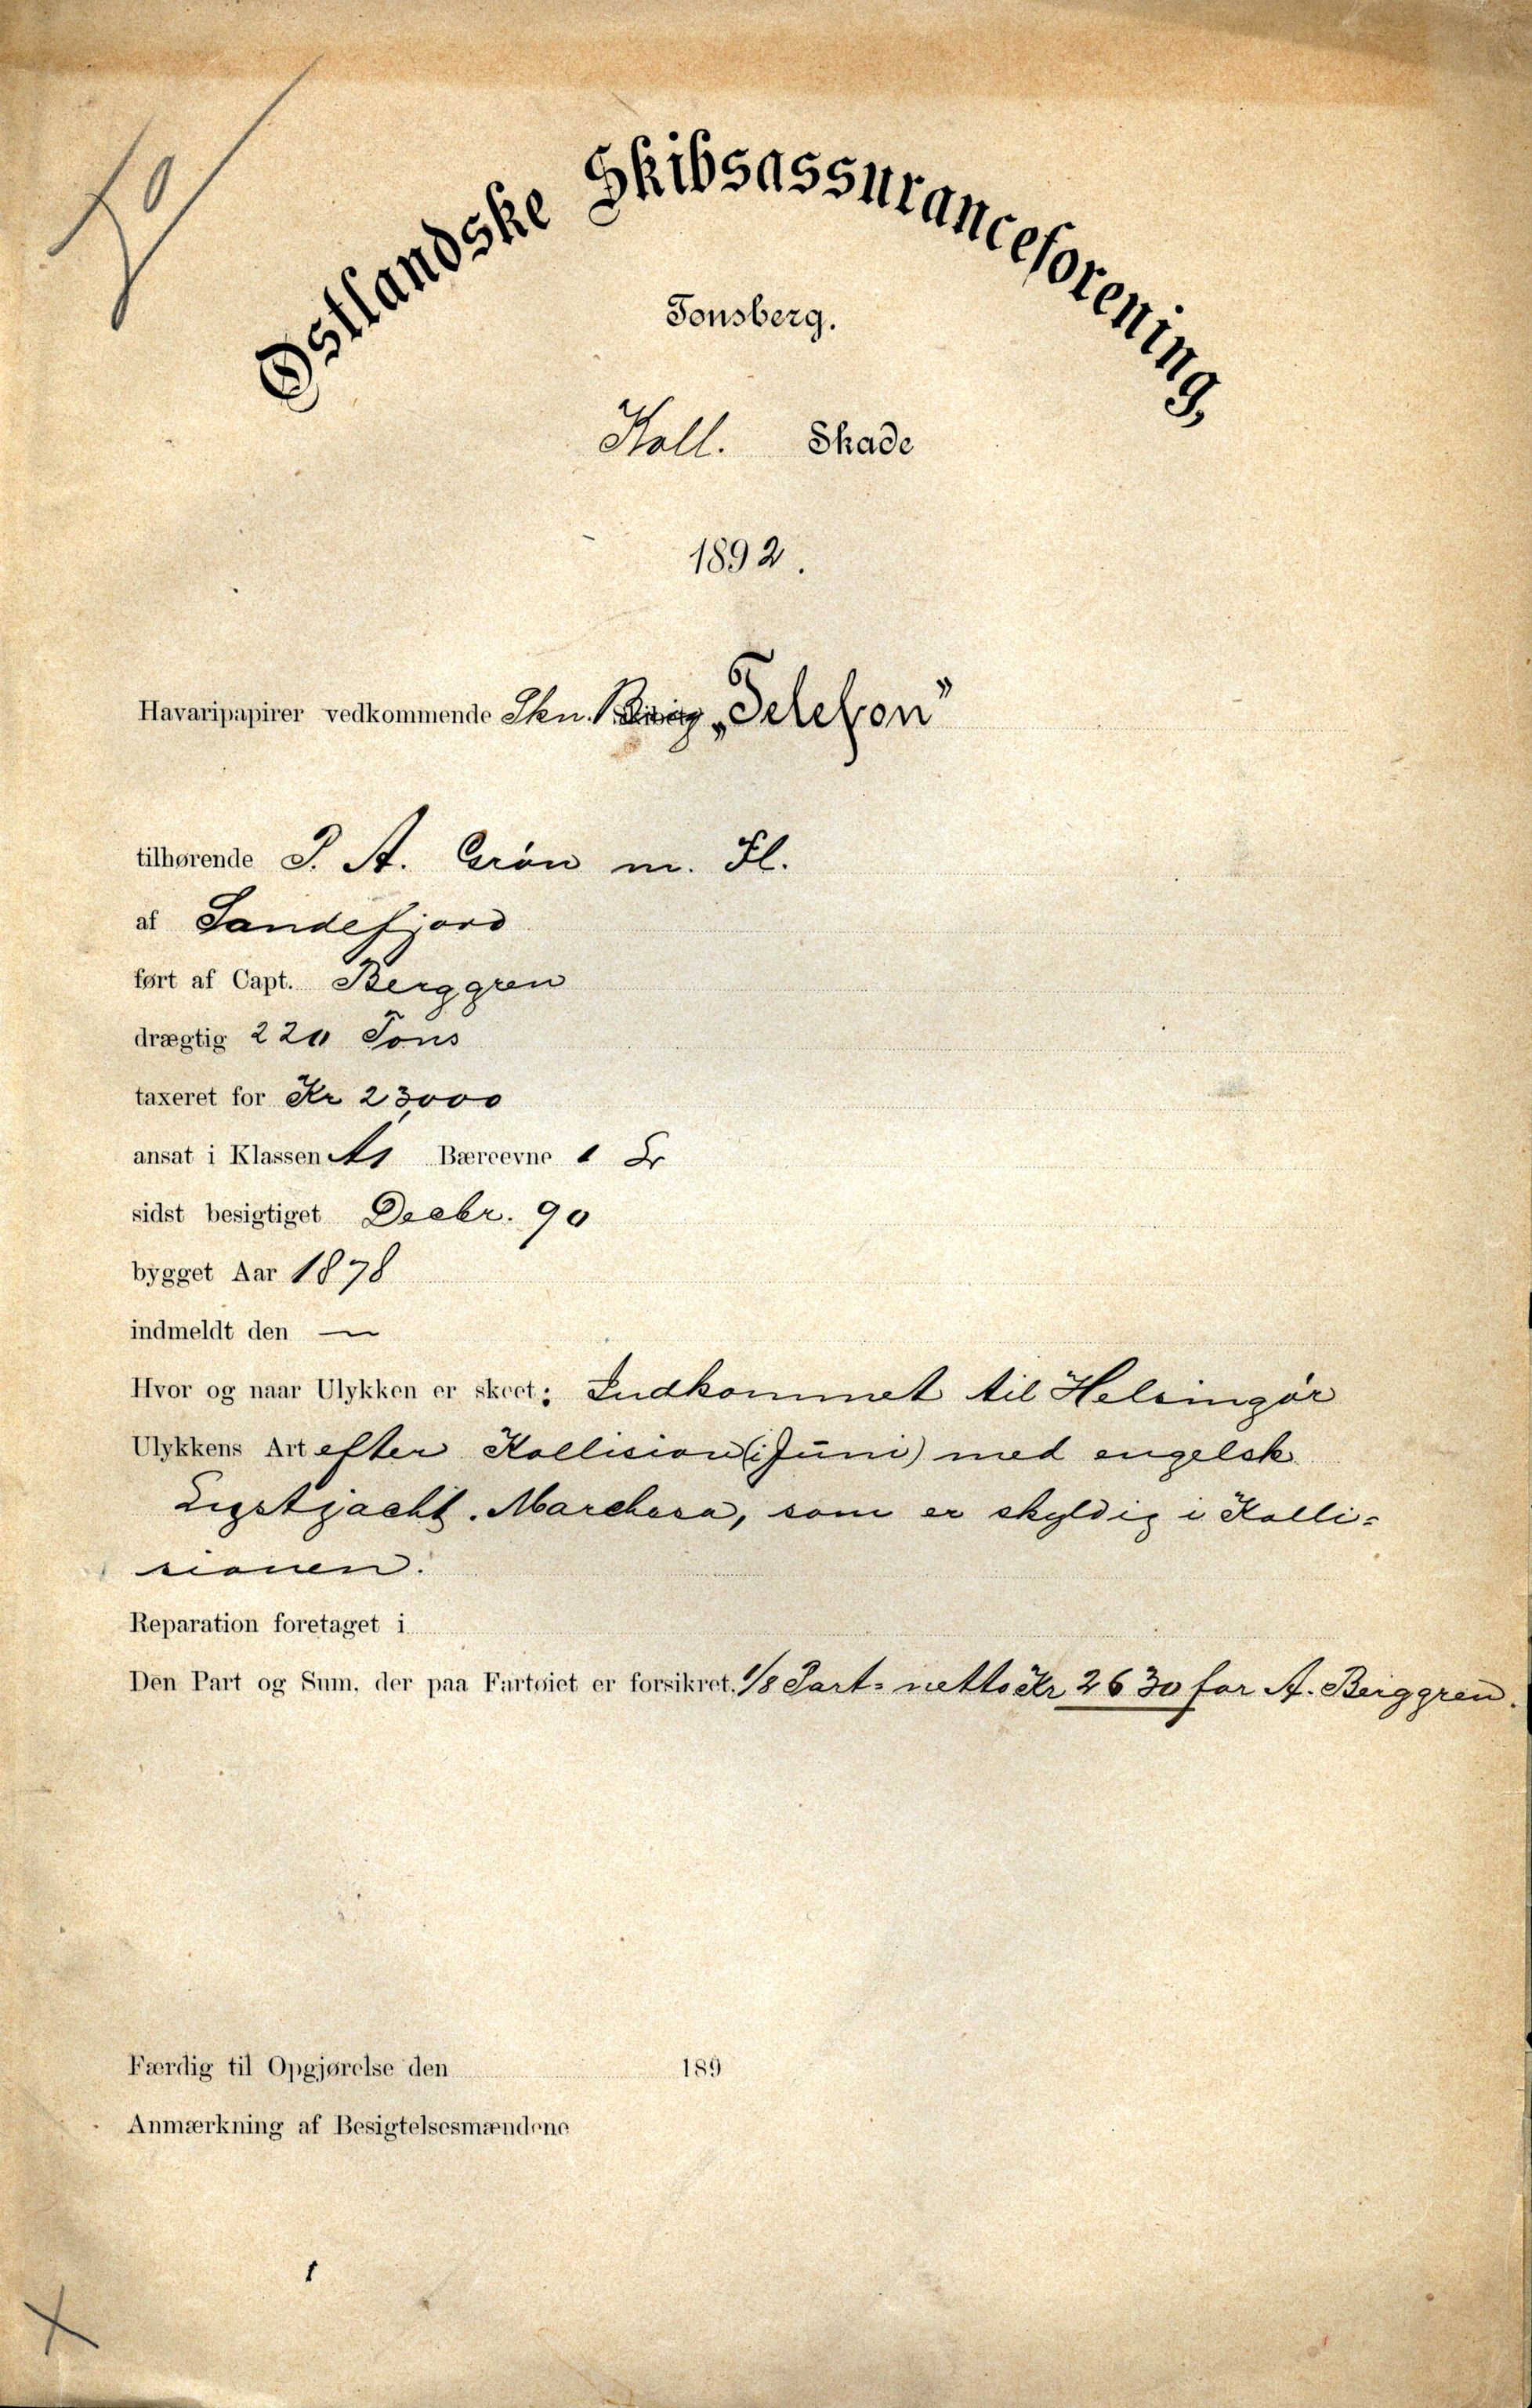 50
Østlandske Skibsassuranceforening,
Tonsberg.
Koll. Skade
1892.
Havaripapirer vedkommende Skn. Brig „Telefon”
tilhørende P. A. Grön m. Fl.
af Sandefjord
ført af Capt. Berggren
drægtig 220 Tons
taxeret for Kr 23,000
ansat i Klassen A1 Bæreevne 1 Er
sidst besigtiget Decbr. 90
bygget Aar 1878
indmeldt den —
Hvor og naar Ulykken er skeet: Indkommet til Helsingør
Ulykkens Art efter Kollision (i Juni) med engelsk
Lystjacht. Marchesa, som er skyldig i Kolli-
sionen.
Reparation foretaget i
Den Part og Sum, der paa Fartøiet er forsikret, 1/8 Part = netto Kr 2630 for A. Berggren.
Færdig til Opgjørelse den 189
Anmærkning af Besigtelsesmændene